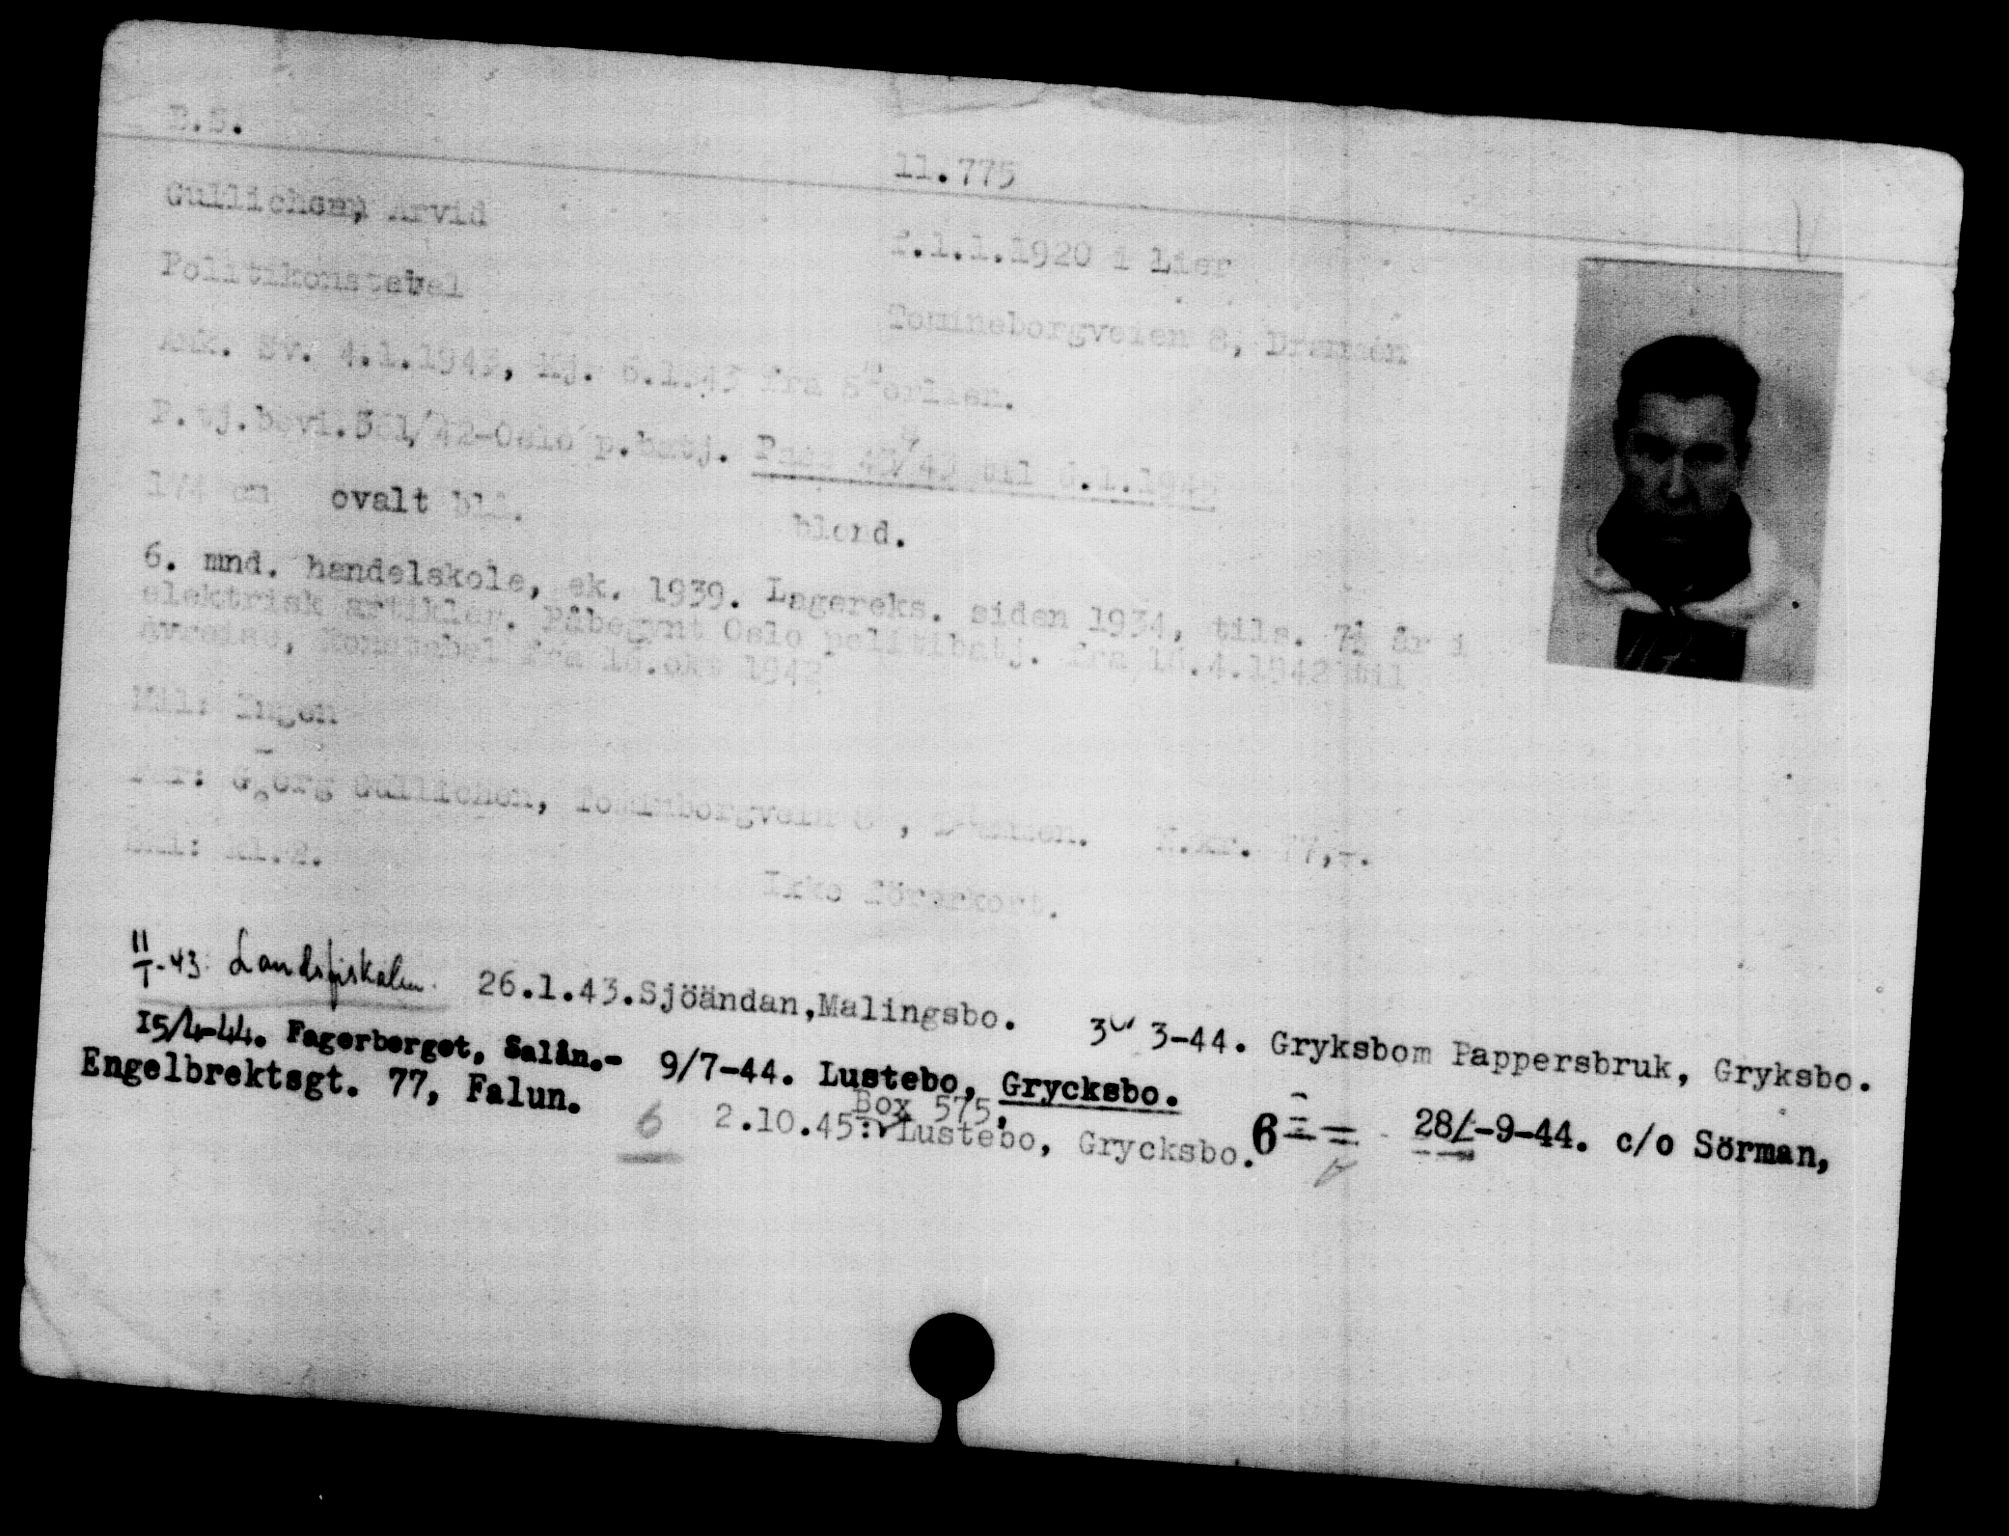 11.775
Gullichsen, Arvid
f.1.1.1920 i Lier
Politikonstabel
Tomineborgveien 8, Drammen
Ank. Sv. 4.1.1943, Kj. 6.1.43 fra
P.tj.bevi.361/42-Oslo p.batj. til 6.1.1945
174 cm ovalt bl.
blond.
6. mnd. handelskole, ek. 1939. Lagereks. siden 1934, tils. 7½ år i
elektrisk artikler. Påbegynt Oslo politibatj. fra 16.4.1942 til
avreise, Konstabel fra 16.okt 1942
Mil: Ingen
Får: Georg Gullichsen, 8, Drammen. N.kr. 77,-.
Ikke förerkort.
11/1-43: Landsfiskalen. 26.1.43.Sjöändan,Malingsbo. 3-44. Gryksbom Pappersbruk, Gryksbo.
15/4-44. Fagerberget, Salån.- 9/7-44. Lustebo, Grycksbo. 28/-9-44. c/o Sörman,
Engelbrektsgt. 77, Falun.
Box 575,
6 2.10.45: Lustebo, Grycksbo. 6